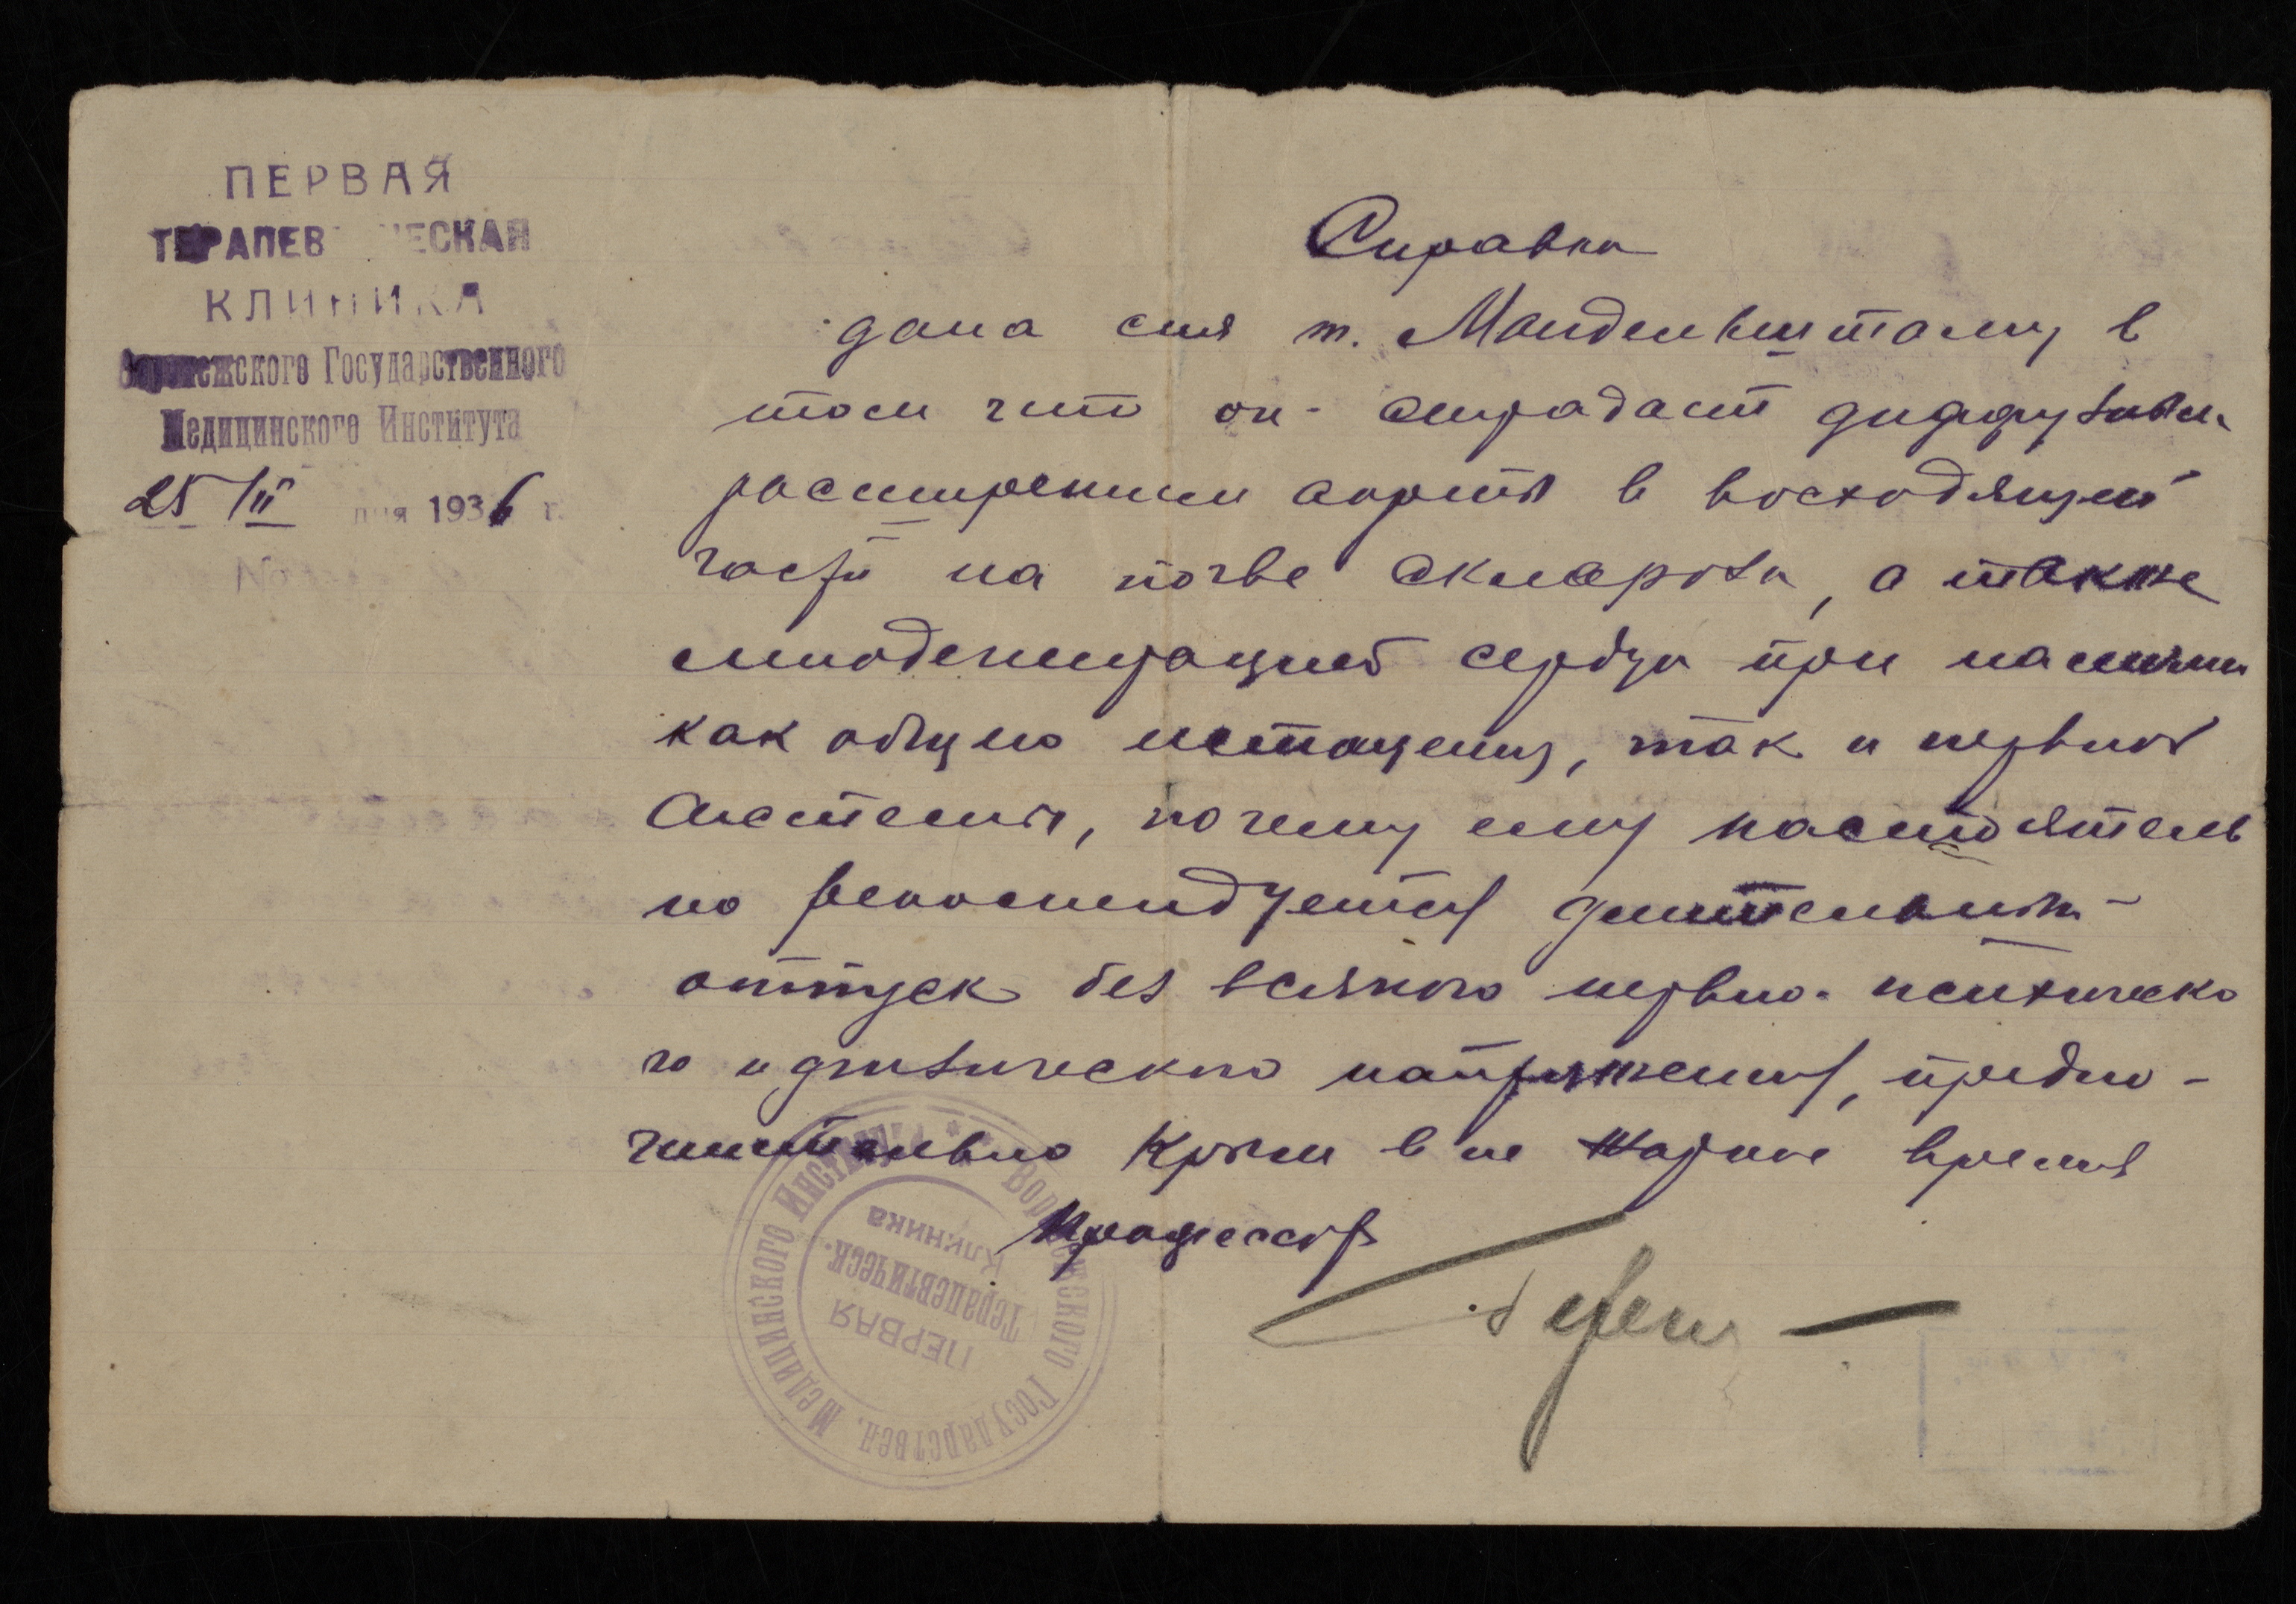 ПЕРВАЯ
ТЕРАПЕВТИЧЕСКАЯ
КЛИНИКА
Воронежского Государственного
Медицинского Института
25/II дня 1936 г.
№
Справка
дана сия т. Мандельштаму в
том что он страдает диффузным
расширением аорты в восходящей
части на почве склероза, а также
миодегенерацией сердца при наличии
как общего истощения, так и нервной
системы, почему ему настоятель
но рекомендуется длительный
отпуск без всякого нервно-психическо
го и физического напряжения, предпо-
чительно Крым в не жаркое время
Профессор
Воронежского Государствен. Медицинского Института *
ПЕРВАЯ
Терапевтическ.
Клиника